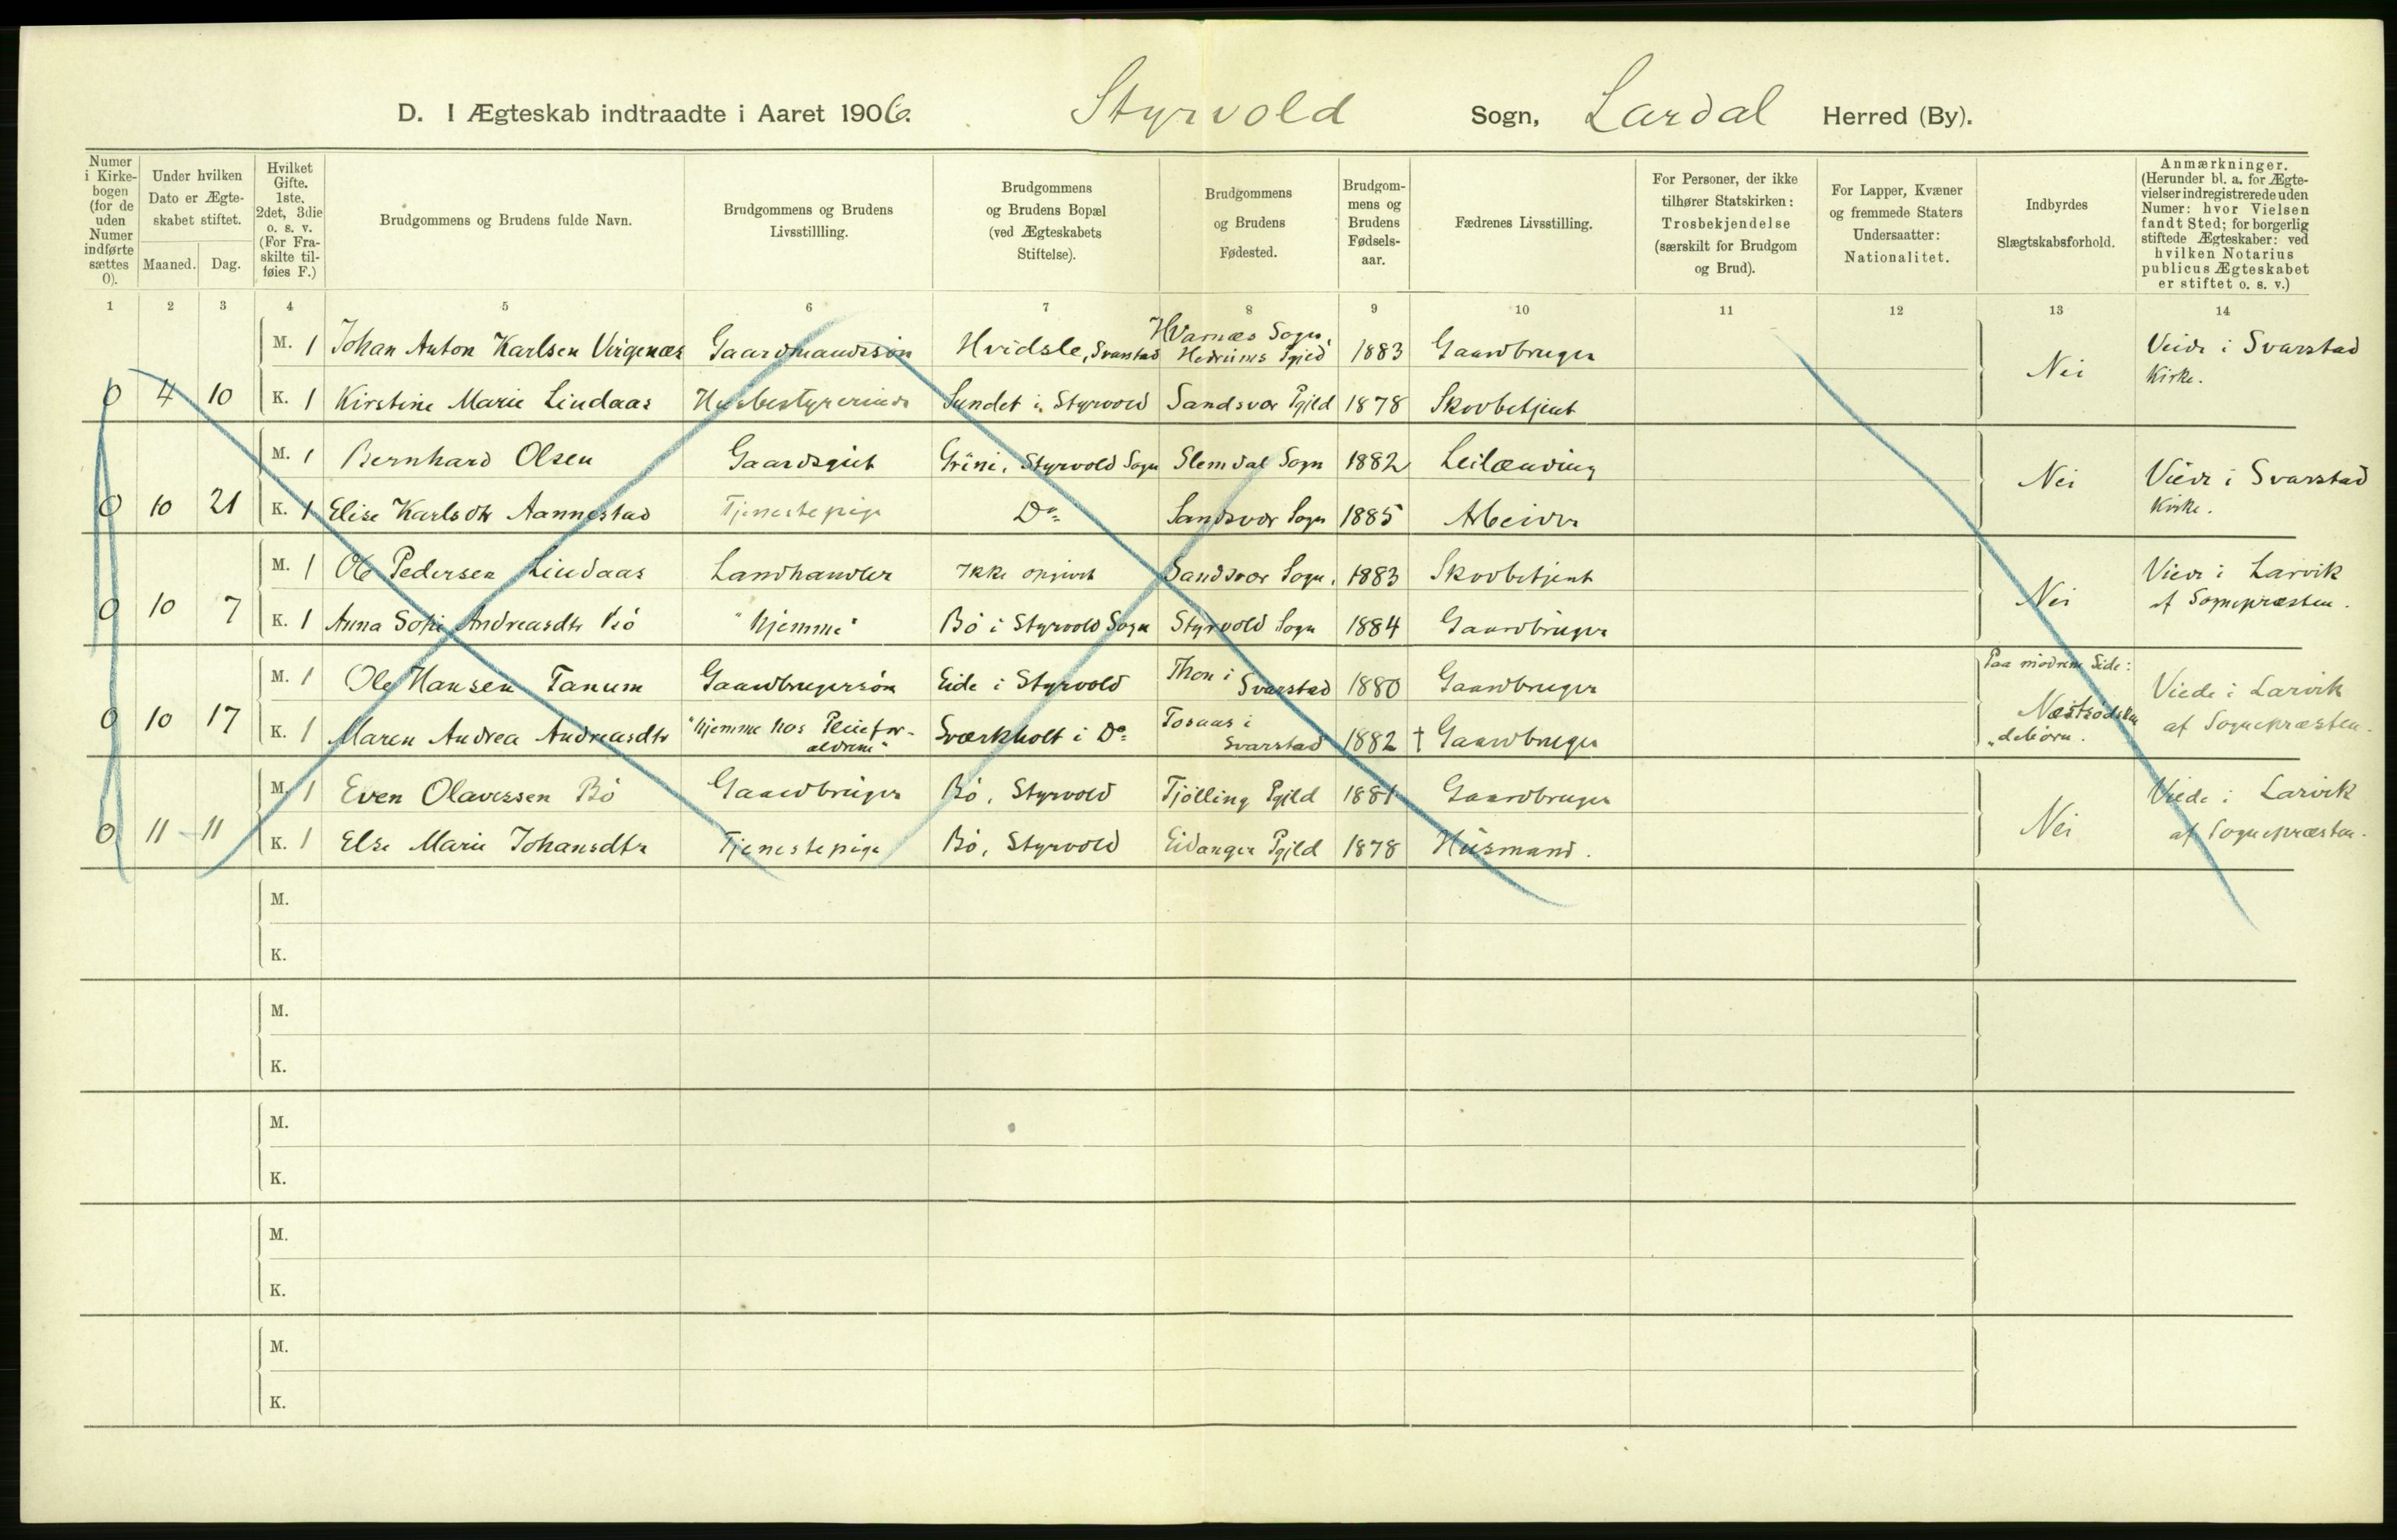 D. I Ægteskab indtraadte i Aaret 1906. Styrvold Sogn, Lardal Herred (By).
Numer i Kirkebogen (for de uden Numer indførte sættes 0).
Under hvilken Dato er Ægteskabet stiftet.
Maaned. Dag.
Hvilket Gifte. 1ste, 2det, 3die o. s. v. (For Fraskilte tilføies F.)
Brudgommens og Brudens fulde Navn.
Brudgommens og Brudens Livsstillling.
Brudgommens og Brudens Bopæl (ved Ægteskabets Stiftelse).
Brudgommens og Brudens Fødested.
Brudgommens og Brudens Fødselsaar.
Fædrenes Livsstilling.
For Personer, der ikke tilhører Statskirken: Trosbekjendelse (særskilt for Brudgom og Brud).
For Lapper, Kvæner og fremmede Staters Undersaatter: Nationalitet.
Indbyrdes Slægtskabsforhold.
Anmærkninger. (Herunder bl. a. for Ægtevielser indregistrerede uden Numer: hvor Vielsen fandt Sted; for borgerlig stiftede Ægteskaber: ved hvilken Notarius publicus Ægteskabet er stiftet o. s. v.)
1 2 3 4 5 6 7 8 9 10 11 12 13 14
M. 1 Johan Anton Karlsen Virgenæs Gaardmandssøn Hvidsle, Svarstad Hvarnæs Sogn, Hedrums Pgjeld 1883 Gaardbruger
0 4 10 K. 1 Kirstine Marie Lindaas Husbestyrerinde Sundet i Styrvold Sandsvær Pgjld 1878 Skovbetjent
Nei Viede i Svarstad
Kirke.
M. 1 Bernhard Olsen Gaardsgut Grini, Styrvold Sogn Slemdal Sogn 1882 Leilænding
0 10 21 K. 1 Elise Karlsdtr Aannestad Tjenestepige Do Sandsvær Sogn 1885 Arbeider
Nei Viede i Svarstad
Kirke.
M. 1 Ole Pedersen Lindaas Landhandler Ikke opgivet Sandsvær Sogn. 1883 Skovbetjent
0 10 7 K. 1 Anna Sofie Andreasdtr Bö "hjemme" Bö i Styrvold Sogn Styrvold Sogn 1884 Gaardbruger
Nei Viede i Larvik
af Sognepræsten.
M. 1 Ole Hansen Tanum Gaardbrugersøn Eide i Styrvold Thon i Svarstad 1880 Gaardbruger
0 10 17 K. 1 Maren Andrea Andreasdtr "hjemme hos Pleieforældrene" Sværkholt i Do Svarstad 1882 † Gaardbruger
Paa mödrene Side:
Næstsödskendebörn.
Viede i Larvik
af Sognepræsten.
M. 1 Even Olavessen Bö Gaardbruger Bö, Styrvold Tjölling Pgjld 1881 Gaardbruger
0 11 11 K. 1 Else Marie Johansdtr Tjenestepige Bö, Styrvold Eidanger Pgjld 1878 Husmand.
Nei Viede i Larvik
af Sognepræsten.
M.
K.
M.
K.
M.
K.
M.
K.
M.
K.